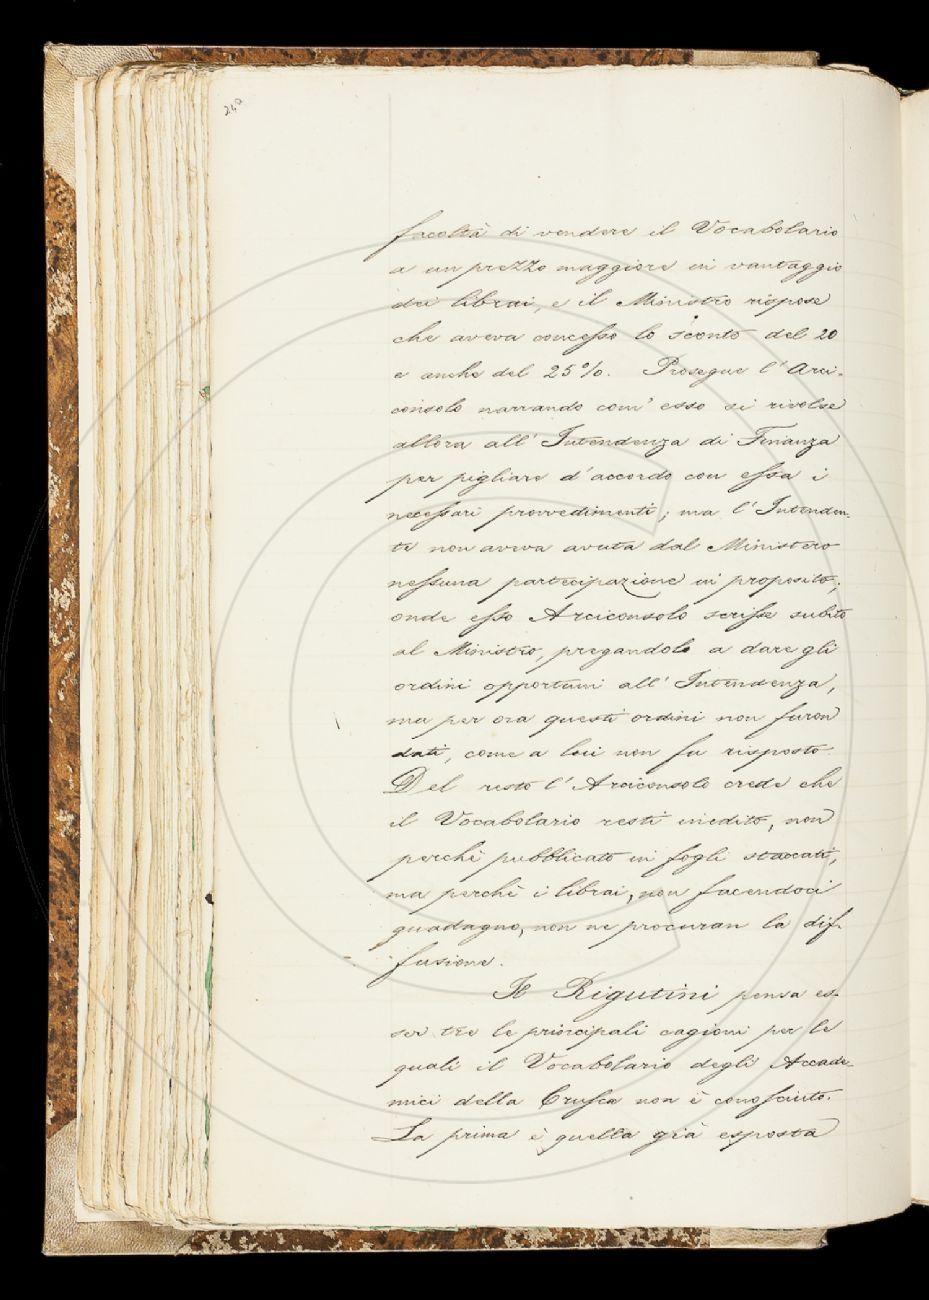 240
facoltà di vendere il Vocabolario
a un prezzo maggiore in vantaggio
dei librai, e il Ministro rispose
che aveva concesso lo sconto del 20
e anche del 25%. Prosegue l'Arci-
consolo narrando com' esso si rivolse
allora all' Intendenza di Finanza
per pigliare d'accordo con essa i
necessari provvedimenti; ma l'Intenden-
te non aveva avuta dal Ministero
nessuna partecipazione in proposito;
onde esso Arciconsolo scrisse subito
al Ministro, pregandolo a dare gli
ordini opportuni all' Intendenza,
ma per ora questi ordini non furon
dati, come a lui non fu risposto.
Del resto l'Arciconsolo crede che
il Vocabolario resti inedito, non
perchè pubblicato in fogli staccati,
ma perchè i librai, non facendoci
guadagno, non ne procuran la dif-
fusione.
Il Rigutini pensa es-
ser tre le principali cagioni per le
quali il Vocabolario degli Accade-
mici della Crusca non è conosciuto.
La prima è quella già esposta